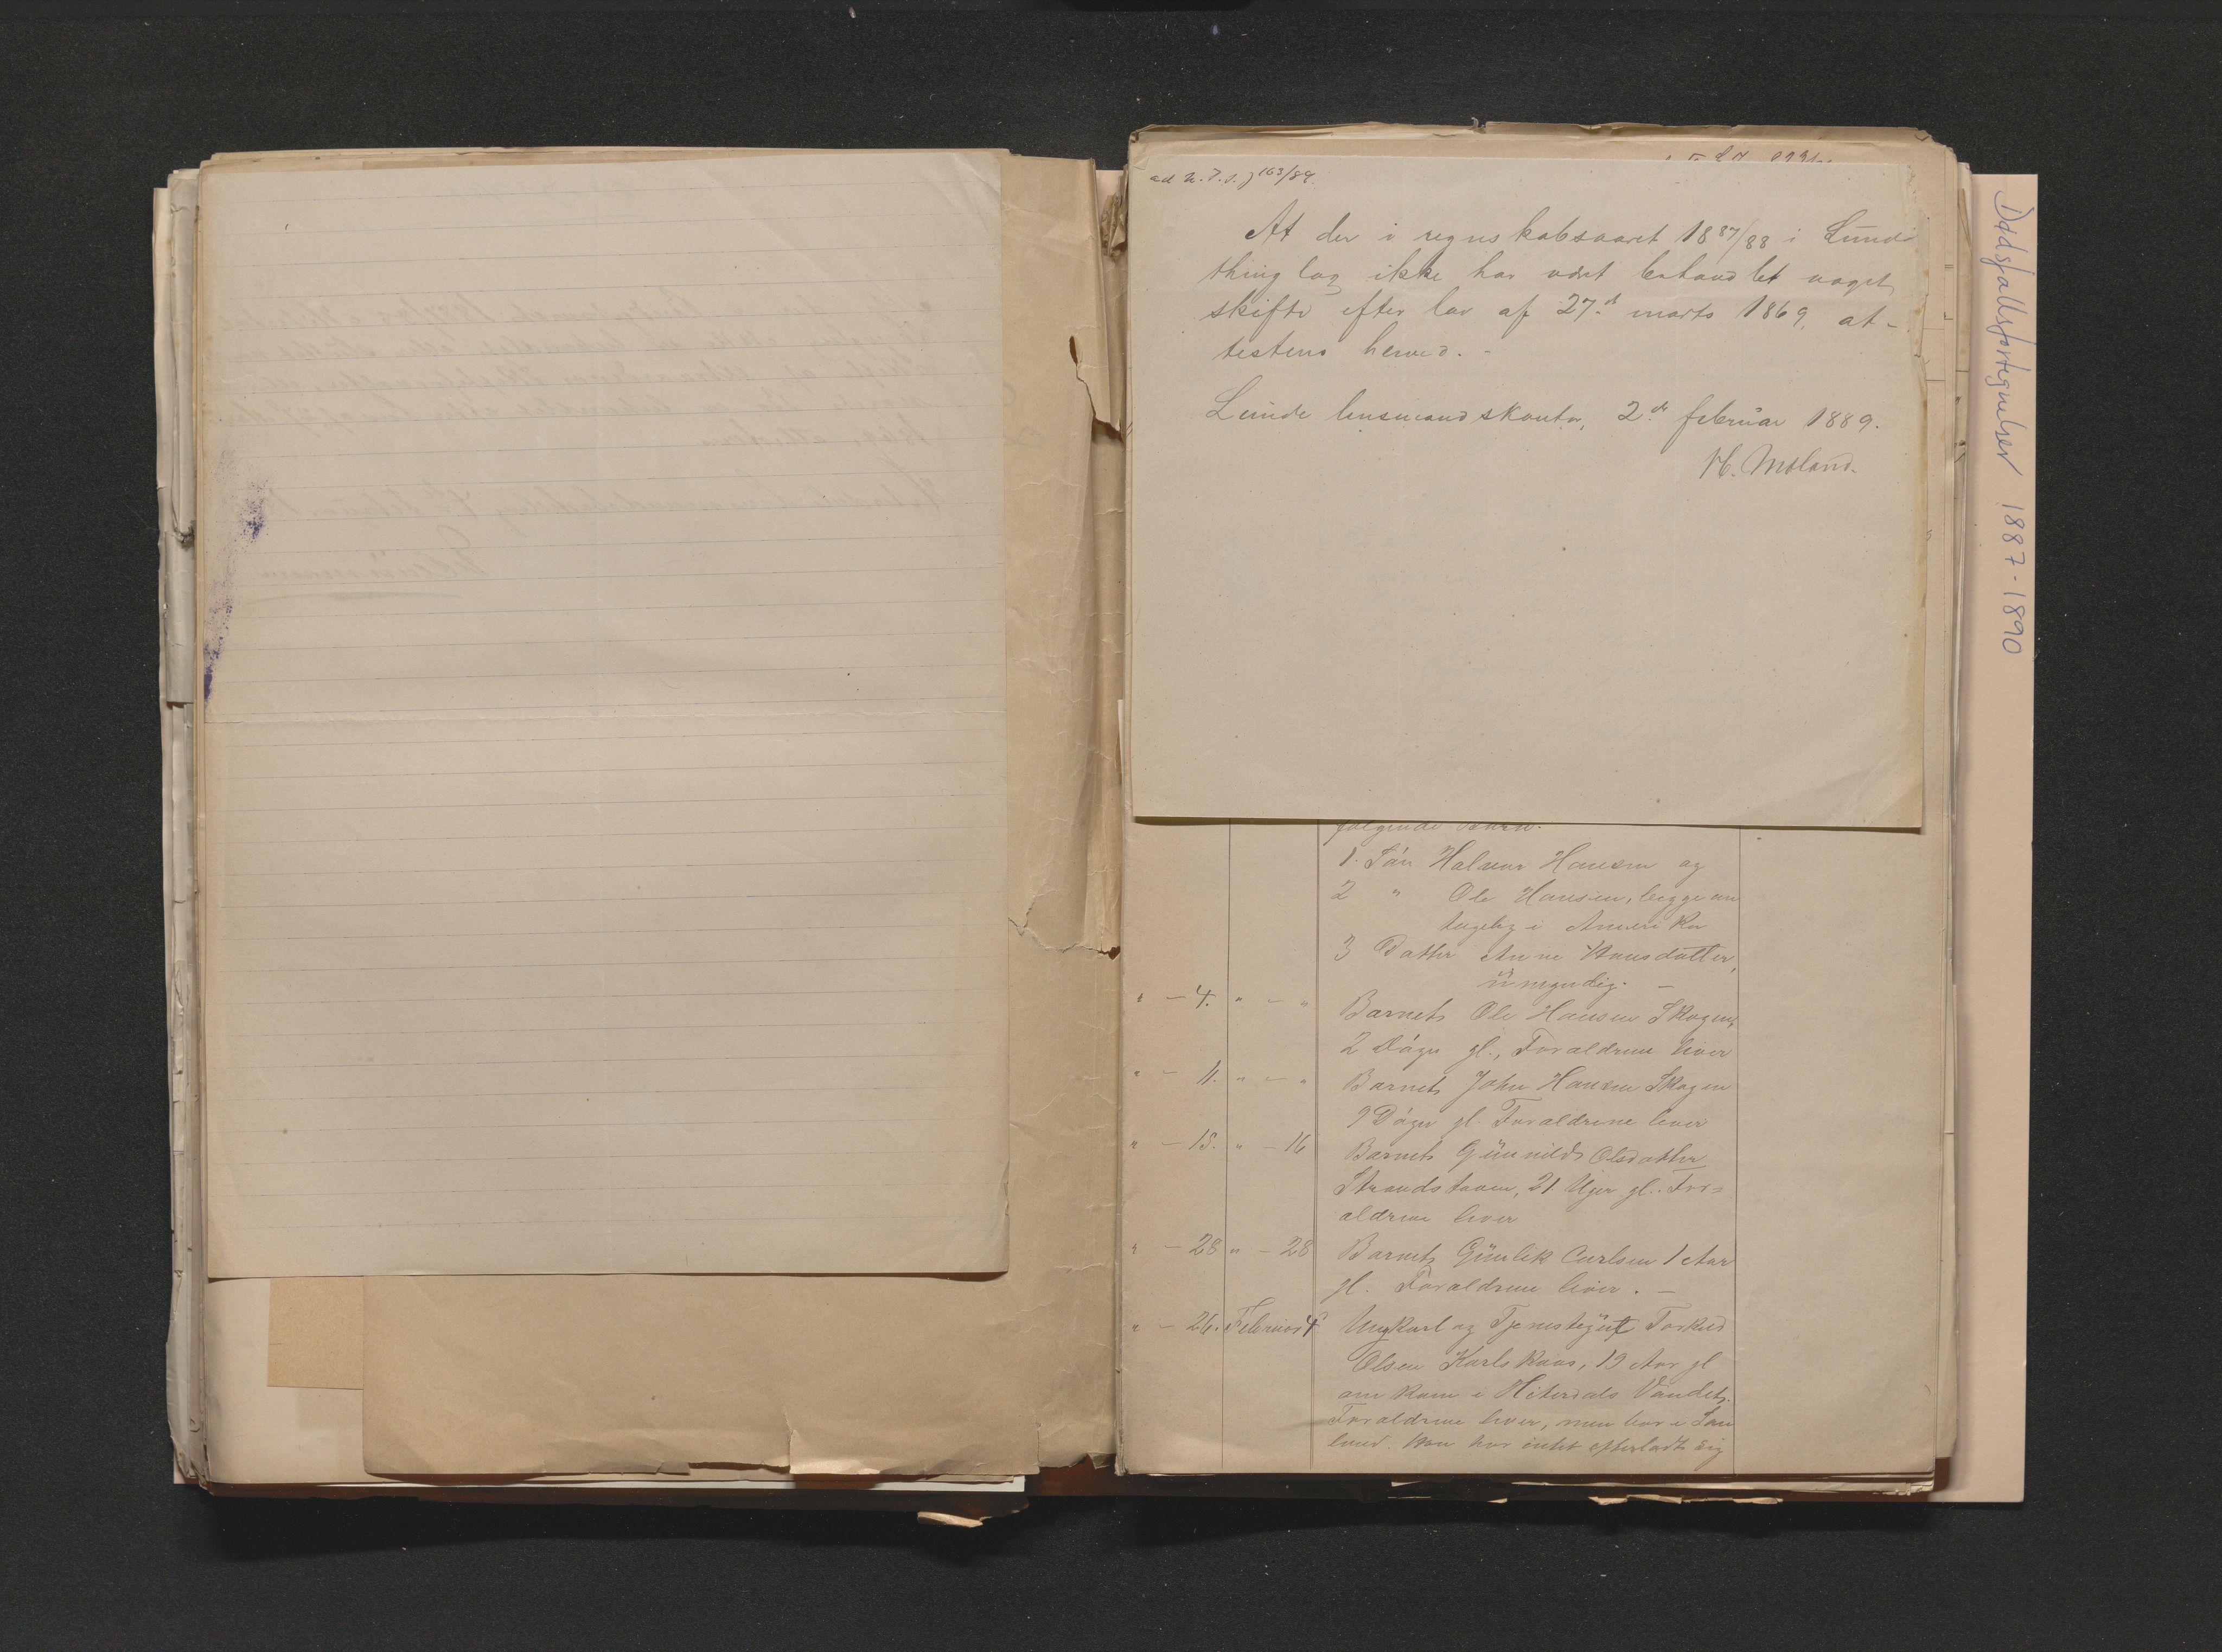 ad 163/89.
At der i regnskabsaaret 1887/88 i Lunde
thinglag ikke har vært behandlet noget
skifte efter lov af 27de marts 1869, at-
testeres herved. -
Lunde lensmandskontor, 2de februar 1889.
H. Moland.
følgende Børn.
1. Søn Halvor Hansen og
2 " Ole Hansen, begge an
tagelig i Amerika
3 Datter Anne Hansdatter,
umyndig. -
" - 4. " - " Barnet Ole Hansen Skogen,
2 Døgn gl., Forældrene lever
" - 11. " - " Barnet John Hansen Skogen
9 Døgn gl. Forældrene lever
" - 15. " - 16 Barnet Gunnild Olsdatter
Strandstaaen, 21 Uger gl. For=
ældrene lever
" - 28 " - 28 Barnet Gunlik Carlsen 1 Aar
gl. Forældrene lever. -
" - 26. Februar 4 Ungkarl og Tjenestegut Torkild
Olsen Karlskaas, 19 Aar gl
omkom i Hiterdals Vandet.
Forældrene lever, men bor i Sau
land. Han har intet efterladt sig
Dødsfallsfortegnelser 1887-1890